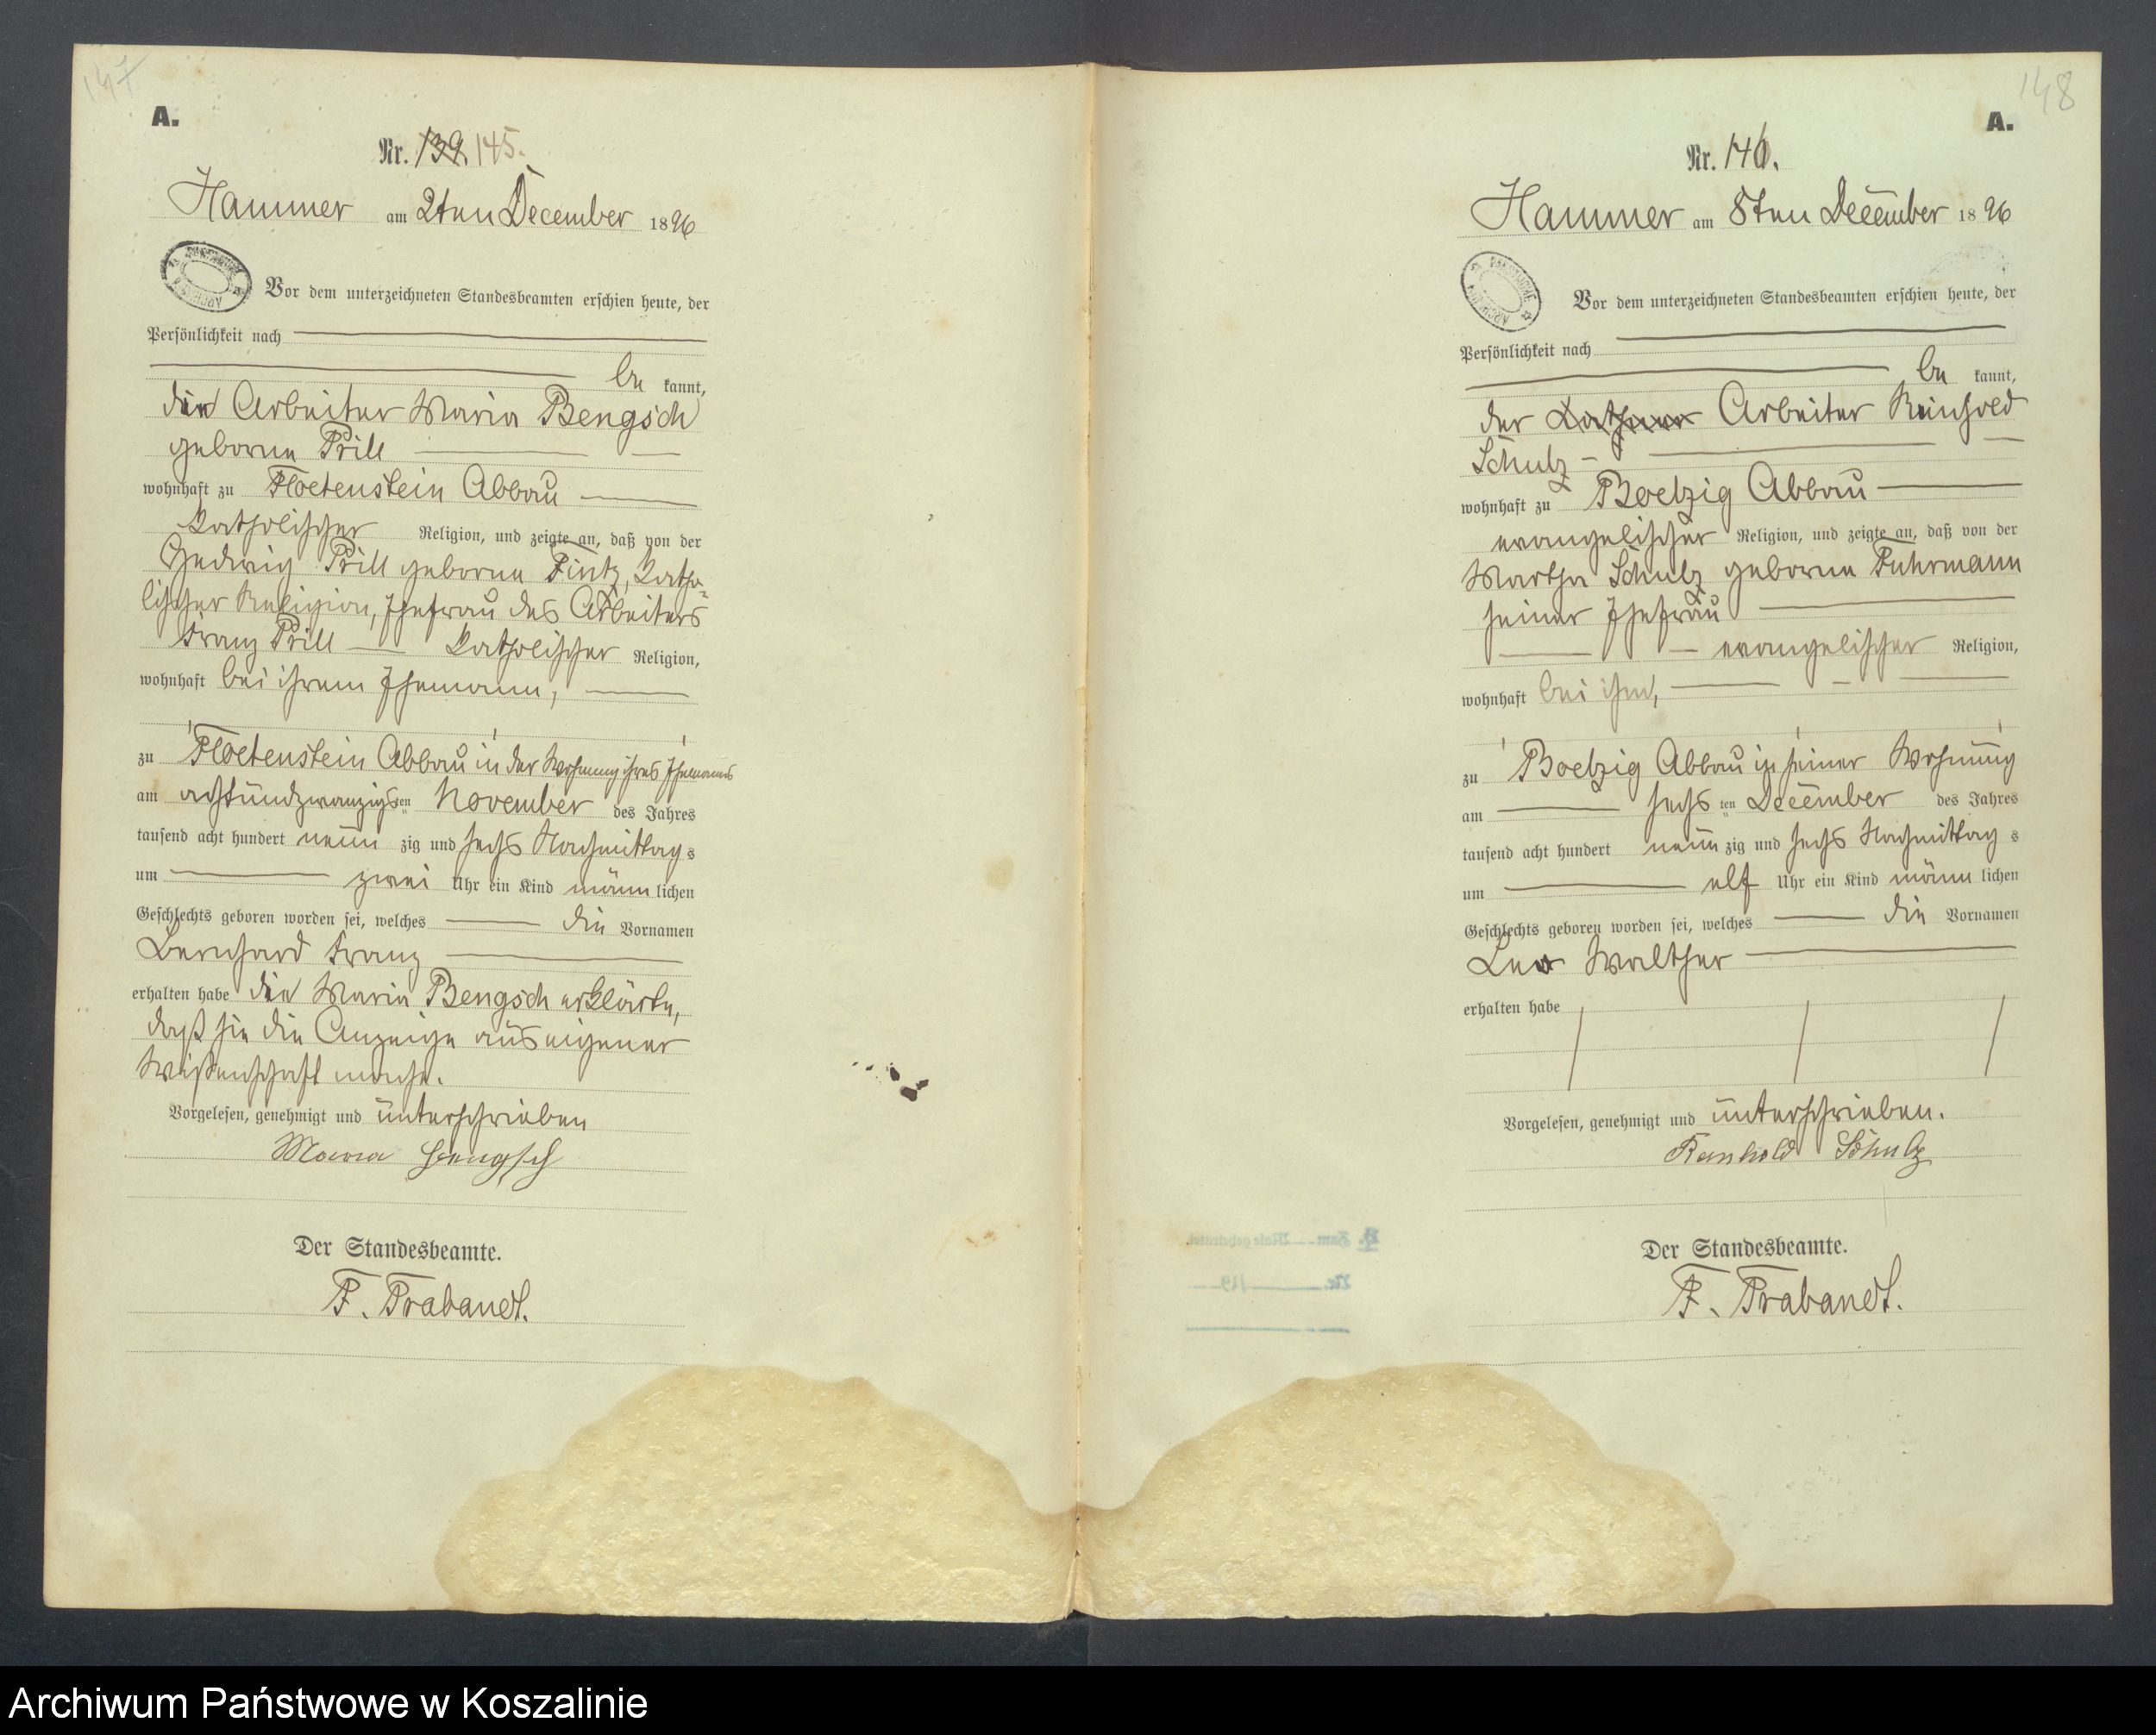 147
A.
Nr. 139. 145.
Hammer am 2ten December 1896
Vor dem unterzeichneten Standesbeamten erschien heute, der
Persönlichkeit nach
be kannt,
die Arbeiter Maria Bengsch
geborne Prill
wohnhaft zu Floetenstein Abbau
katholischer Religion, und zeigte an, daß von der
Hedwig Prill geborne Fintz, katho-
lischer Religion, Ehefrau des Arbeiters
Franz Prill katholischer Religion,
wohnhaft bei ihrem Ehemann,
zu Floetenstein Abbau in der Wohnung ihres Ehemanns
am achtundzwanzigsten November des Jahres
tausend acht hundert neun zig und sechs Nachmittag s
um zwei Uhr ein Kind männ lichen
Geschlechts geboren worden sei, welches die Vornamen
Bernhard Franz
erhalten habe die Maria Bengsch erklärte,
daß sie die Anzeige aus eigener
Wissenschaft mache.
Vorgelesen, genehmigt und unterschrieben
Maria Bengsch
Der Standesbeamte.
F. Trabandt.
148
A.
Nr. 146.
Hammer am 8ten December 1896
Vor dem unterzeichneten Standesbeamten erschien heute, der
Persönlichkeit nach
be kannt,
der Arbeiter Reinhold
Schulz
wohnhaft zu Boetzig Abbau
evangelischer Religion, und zeigte an, daß von der
Martha Schulz geborne Fuhrmann
seiner Ehefrau
evangelischer Religion,
wohnhaft bei ihm,
zu Boetzig Abbau in seiner Wohnung
am sechs ten December des Jahres
tausend acht hundert neun zig und sechs Nachmittag s
um elf Uhr ein Kind männ lichen
Geschlechts geboren worden sei, welches die Vornamen
Leo Walther
erhalten habe
Vorgelesen, genehmigt und unterschrieben.
Reinhold Schulz
Der Standesbeamte.
F. Trabandt.
Archiwum Państwowe w Koszalinie